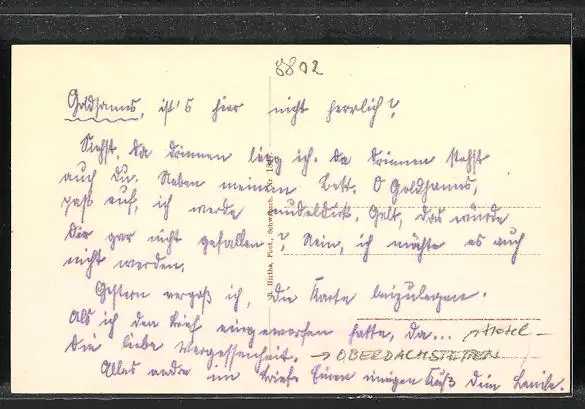 8802
Goldhannes, ist's hier nicht herrlich?
Siehst, da drinnen lieg ich. Da drinnen stehst
auch Du. Neben meinem Bett. O Goldhannes,
paß auf, ich werde nudeldick. Gelt, das würde
Dir gar nicht gefallen? Nein, ich möchte es auch
nicht werden.
Gestern vergaß ich, die Karte beizulegen.
Als ich den Brief eingeworfen hatte, da... → Hotel -
Die liebe Vergessenheit. → OBERDACHSTETTEN
Alles andre im Brief. Einen innigen Kuß Dein
R. Hirthe, Phot., Schwabach. Nr